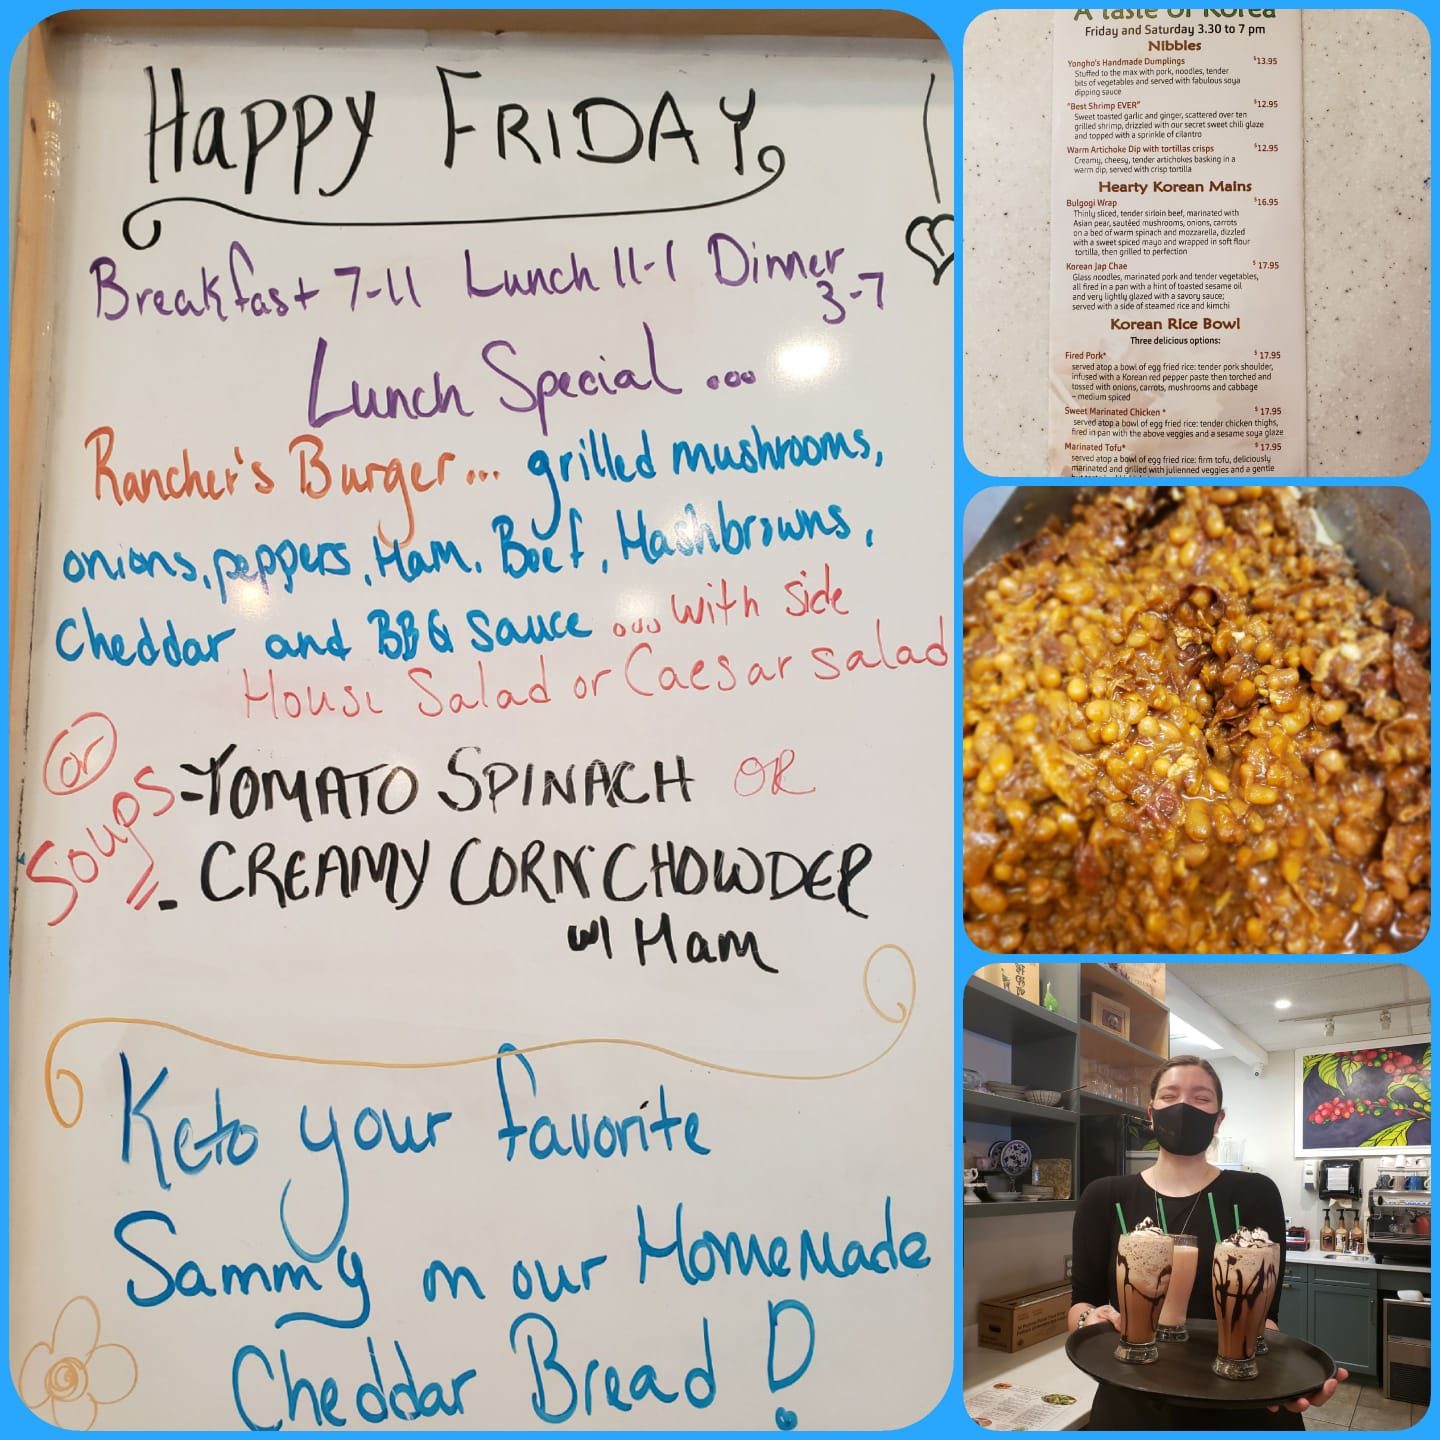 Happy FRIDAY !
Breakfast 7-11 Lunch 11-1 Dinner
3-7
Lunch Special ...
Rancher's Burger... grilled mushrooms,
onions, peppers, Ham, Beef, Hashbrowns,
Cheddar and BBQ Sauce ... with side
House Salad or Caesar salad
or
Soups - TOMATO SPINACH OR
- CREAMY CORN CHOWDER
w/ Ham
Keto your favorite
Sammy on our Homemade
Cheddar Bread !
A Taste of Korea
Friday and Saturday 3.30 to 7 pm
Nibbles
Yongho's Handmade Dumplings $13.95
Stuffed to the max with pork, noodles, tender
bits of vegetables and served with fabulous soya
dipping sauce
"Best Shrimp EVER" $12.95
Sweet toasted garlic and ginger, scattered over ten
grilled shrimp, drizzled with our secret sweet chili glaze
and topped with a sprinkle of cilantro
Warm Artichoke Dip with tortillas crisps $12.95
Creamy, cheesy, tender artichokes basking in a
warm dip, served with crisp tortilla
Hearty Korean Mains
Bulgogi Wrap $16.95
Thinly sliced, tender sirloin beef, marinated with
Asian pear, sautéed mushrooms, onions, carrots
on a bed of warm spinach and mozzarella, dizzled
with a sweet spiced mayo and wrapped in soft flour
tortilla, then grilled to perfection
Korean Jap Chae $ 17.95
Glass noodles, marinated pork and tender vegetables,
all fired in a pan with a hint of toasted sesame oil
and very lightly glazed with a savory sauce;
served with a side of steamed rice and kimchi
Korean Rice Bowl
Three delicious options:
Fired Pork* $ 17.95
served atop a bowl of egg fried rice: tender pork shoulder,
infused with a Korean red pepper paste then torched and
tossed with onions, carrots, mushrooms and cabbage
– medium spiced
Sweet Marinated Chicken * $ 17.95
served atop a bowl of egg fried rice: tender chicken thighs,
fired in pan with the above veggies and a sesame soya glaze
Marinated Tofu* $ 17.95
served atop a bowl of egg fried rice: firm tofu, deliciously
marinated and grilled with julienned veggies and a gentle